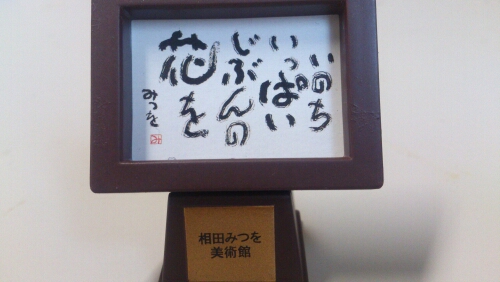 いのち
いっぱい
じぶんの
花を
みつを
相田みつを
美術館